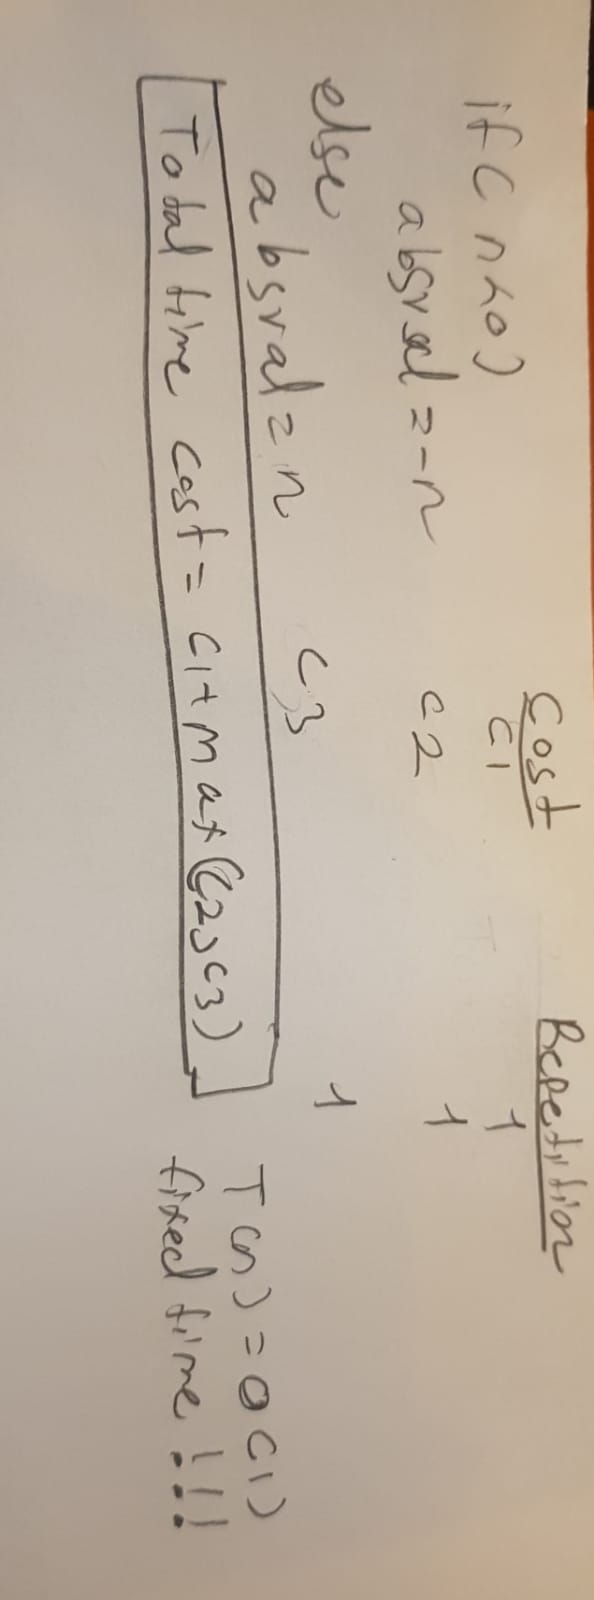 Cost Repetition
if(n<0) c1 1
absval=-n c2 1
else
absval=n c3 1
Total time cost = c1+max(c2,c3) T(n)=O(1)
fixed time!!!